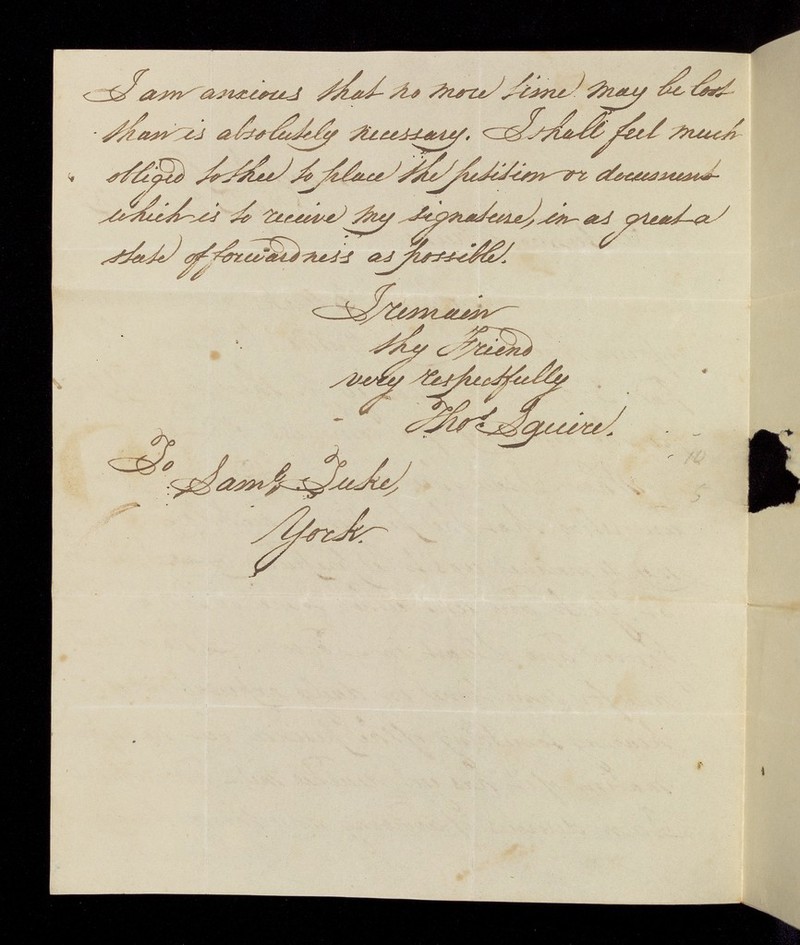 I am anxious that no more time may be lost
than is absolutely necessary. I shall feel much
obliged to thee to place the petition or document
which is to receive my signature, in as great a
state of forwardness as possible.
I remain
thy Friend
very respectfully
Thos. Squire.
To
Saml. Tuke,
York.